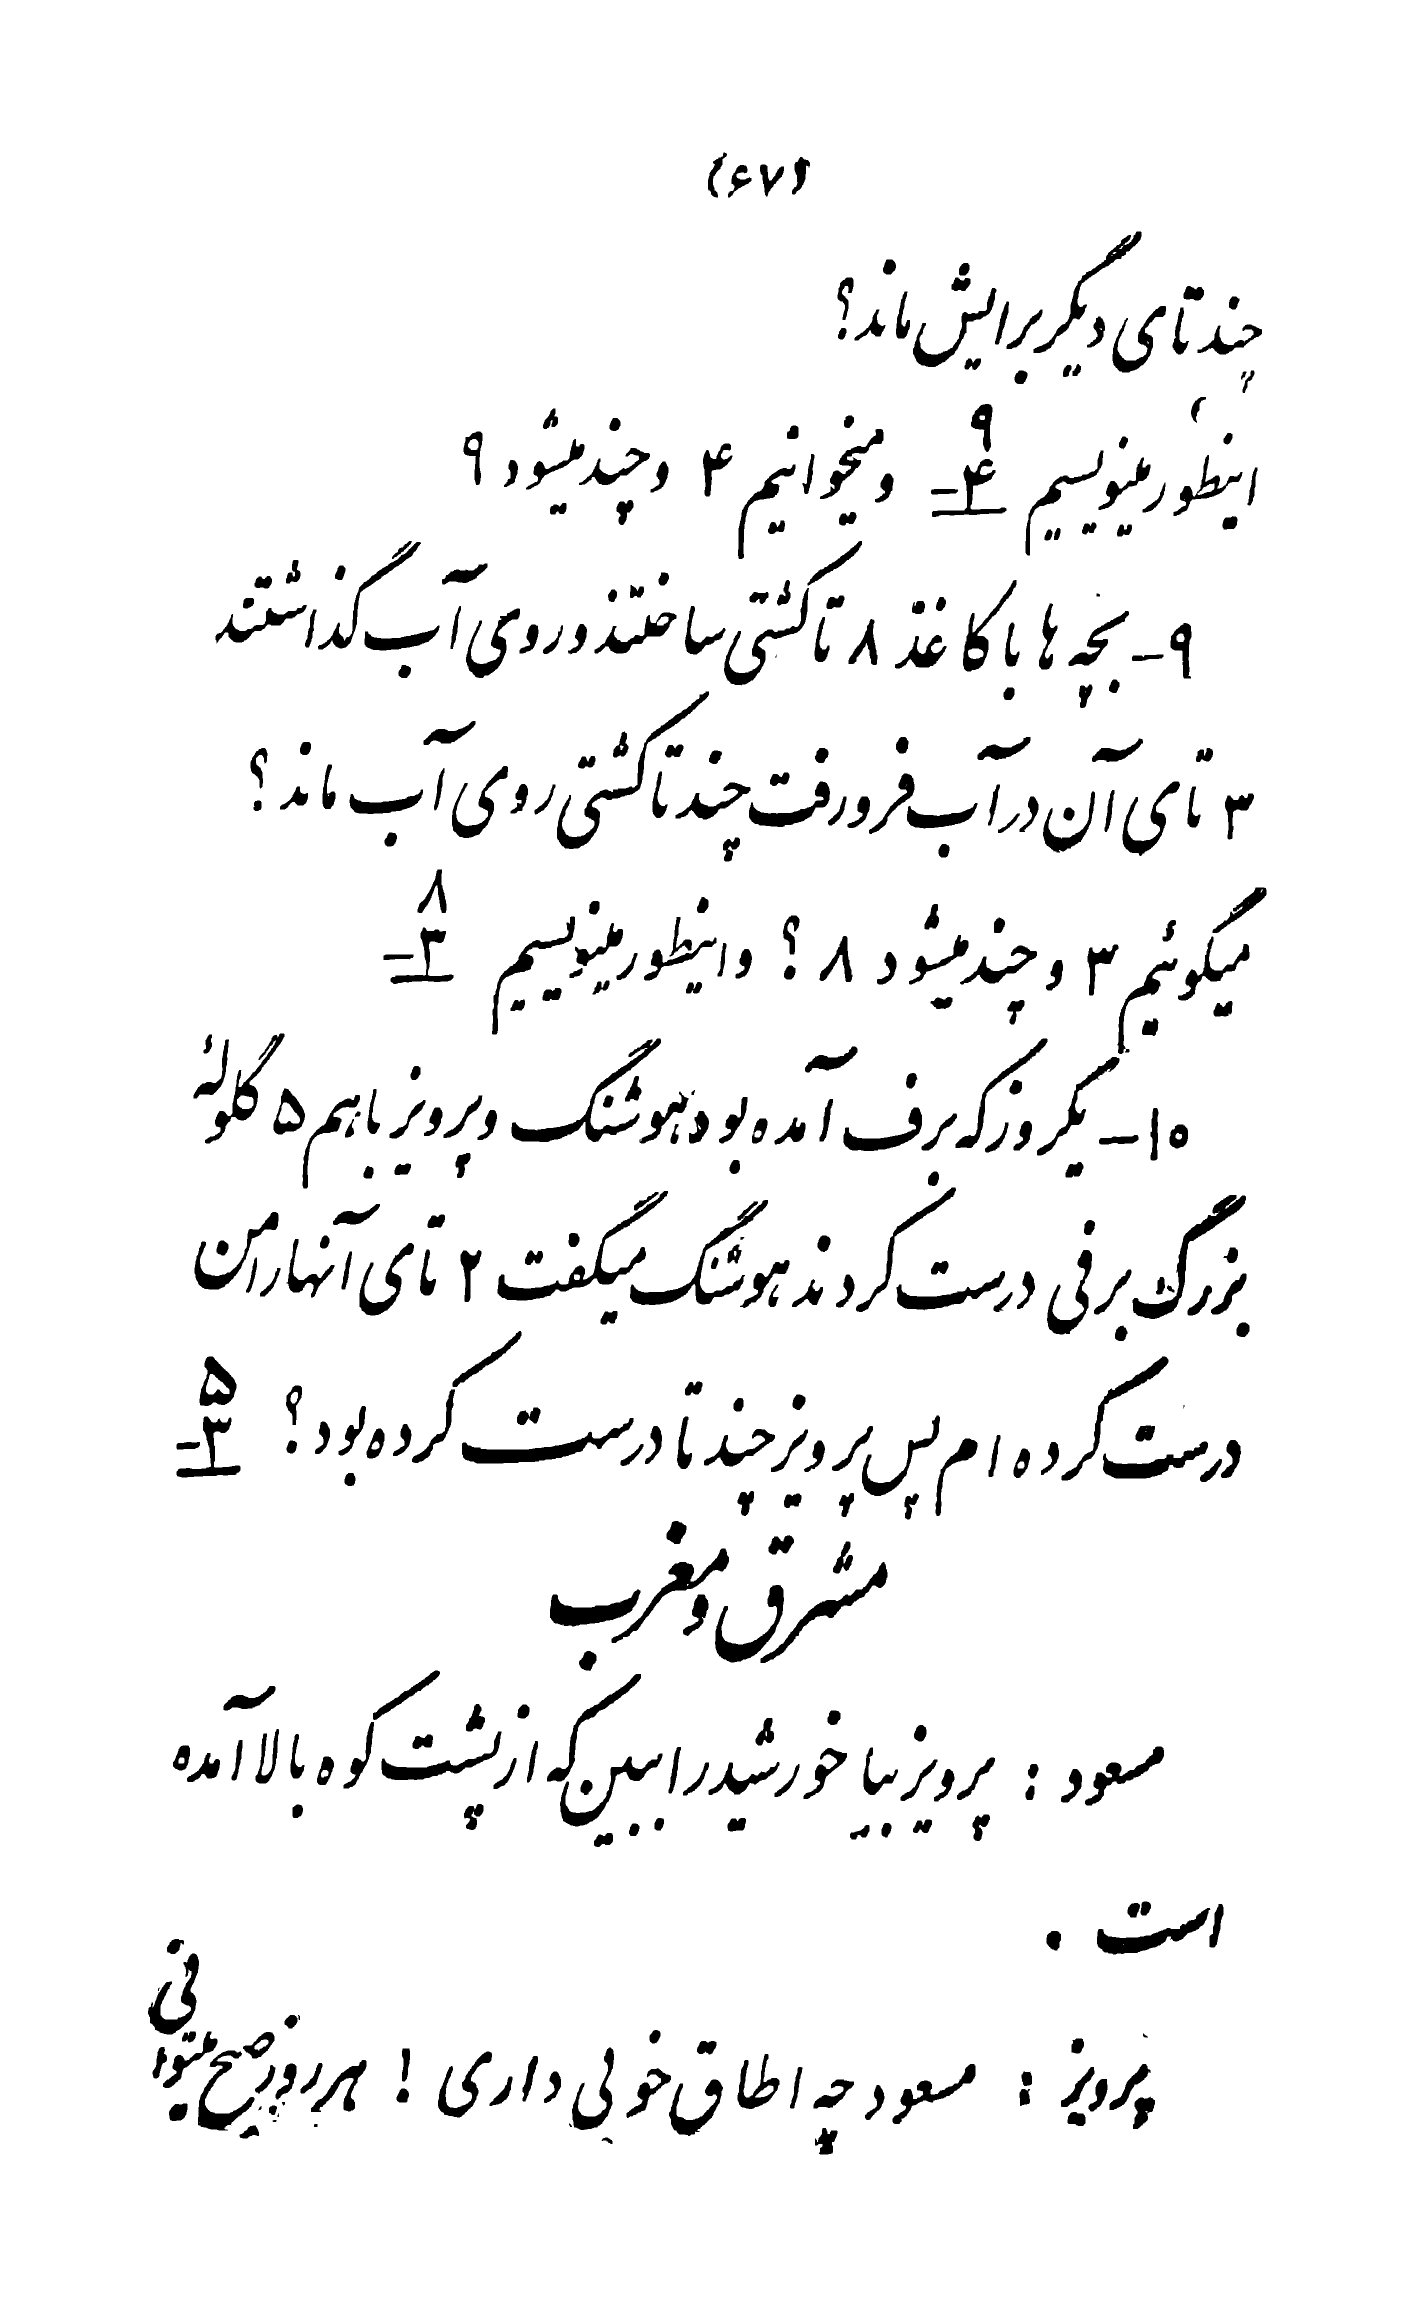 (۶۷)
چند تای دیگر برایش ماند؟
اینطور مینویسیم ۹ -۴ ومیخوانیم ۴ و چند میشود ۹
۹- بچه ها با کاغذ ۸ تا کشتی ساختند و روی آب گذاشتند
۳ تای آن در آب فرو رفت چند تا کشتی روی آب ماند؟
میگوئیم ۳ و چند میشود ۸ ؟ و اینطور مینویسیم ۸ -۳
۱۰- یکروز که برف آمده بود هوشنگ و پرویز با هم ۵ گلولهٔ
بزرگ برفی درست کردند هوشنگ میگفت ۲ تای آنها را من
درست کرده ام پس پرویز چند تا درست کرده بود؟ ۵ -۳
مشرق و مغرب
مسعود : پرویز بیا خورشید را ببین که از پشت کوه بالا آمده
است .
پرویز : مسعود چه اطاق خوبی داری ! هر روز صبح میتوانی